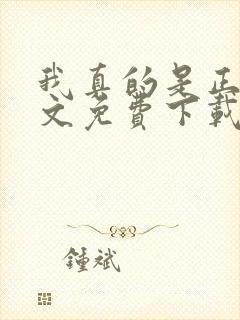 我真的是正
文免費下載
鍾斌